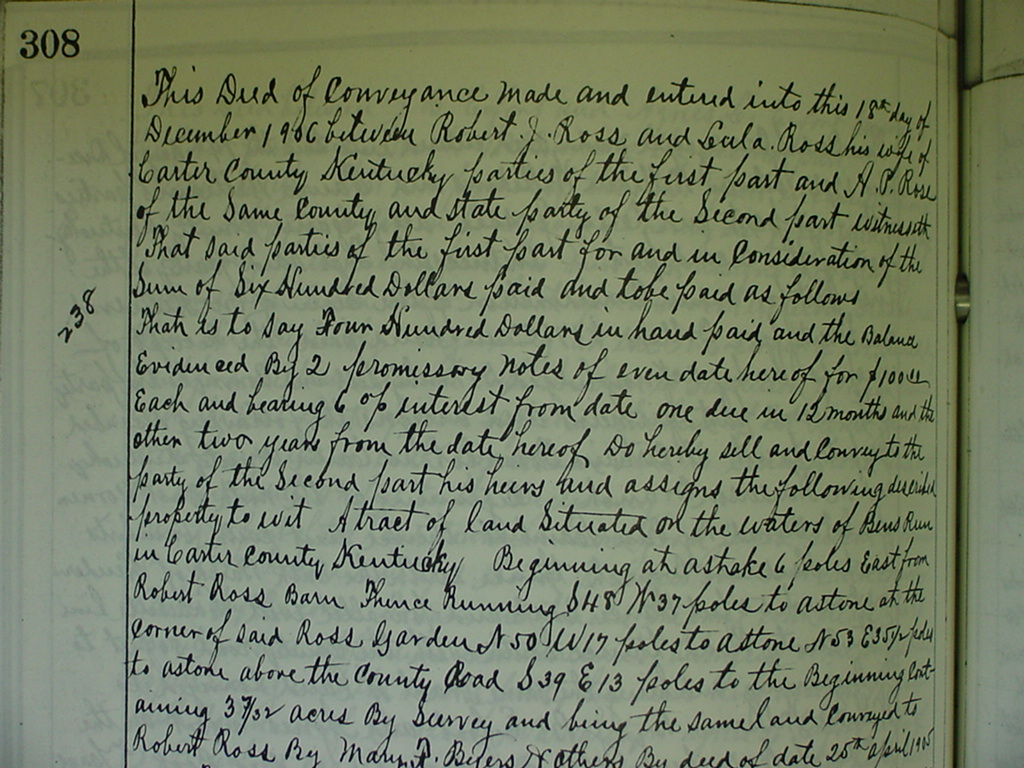 308
This Deed of Conveyance made and entered into this 18th day of
December 1906 between Robert J. Ross and Lula Ross his wife of
Carter County Kentucky parties of the first part and A. P. Rose
of the Same County and state party of the Second part witnesseth
That said parties of the first part for and in Consideration of the
Sum of Six Hundred Dollars paid and to be paid as follows
238
That is to say Four Hundred Dollars in hand paid and the Balance
Evidenced By 2 promissory notes of even date hereof for $100.00
Each and bearing 6 % interest from date one due in 12 months and the
other two years from the date hereof Do hereby sell and Convey to the
party of the Second part his heirs and assigns the following described
property to wit A tract of land Situated on the waters of Bens Run
in Carter County Kentucky Beginning at a stake 6 poles East from
Robert Ross Barn Thence Running S 48 W 37 poles to a stone at the
Corner of said Ross Garden N 50 W 17 poles to a stone N 53 E 35 1/2 poles
to a stone above the County Road S 39 E 13 poles to the Beginning Cont-
aining 3 7/32 acres By Survey and being the same land Conveyed to
Robert Ross By Mary & others By deed of date 25th April 1905